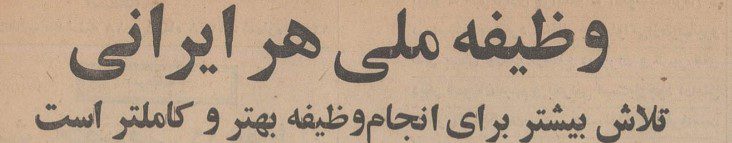 وظیفه ملی هر ایرانی
تلاش بیشتر برای انجام وظیفه بهتر و کاملتر است